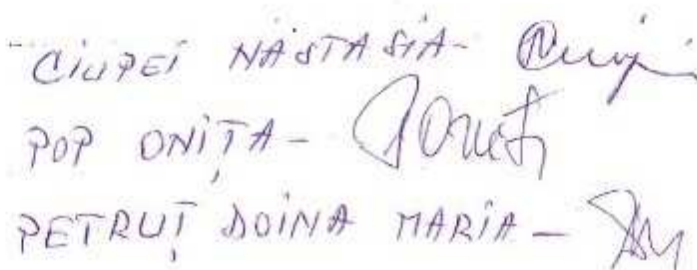 CIUPEI NASTASIA-
POP ONIȚA-
PETRUȚ DOINA MARIA-